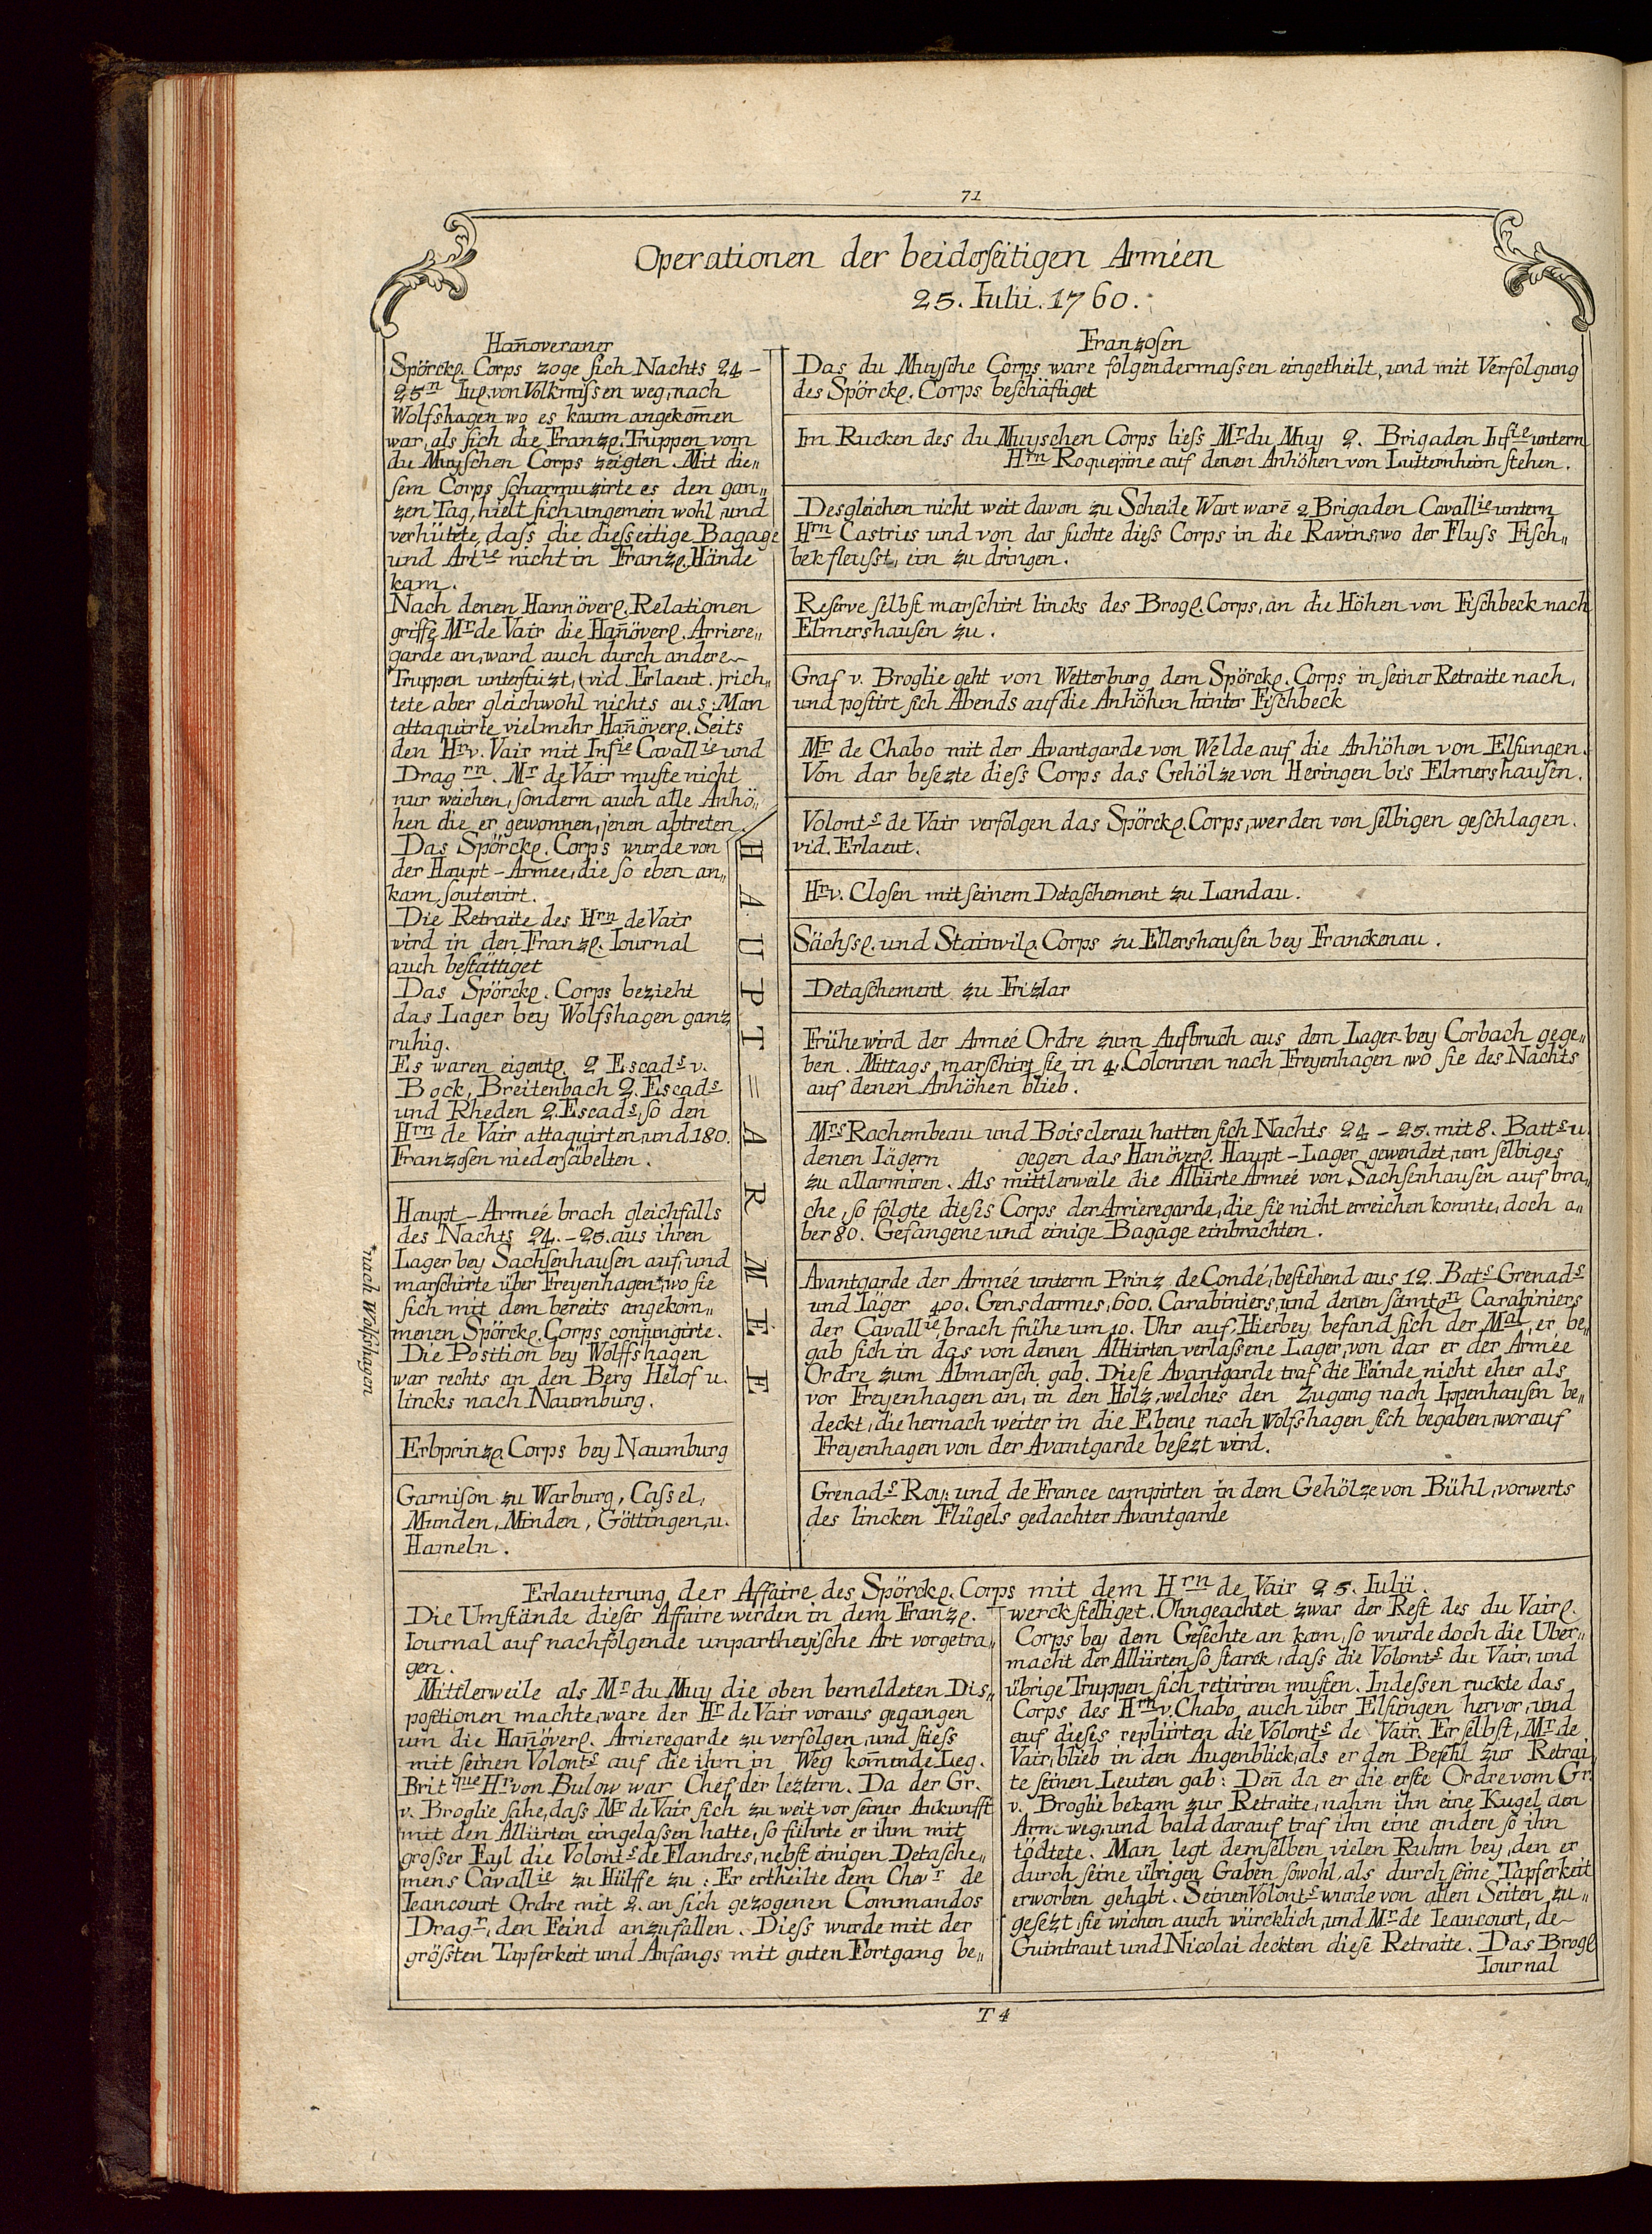 71
Operationen der beiderseitigen Arméen
25. Iulii. 1760.
Han̄overaner
Spörckl. Corps zoge sich Nachts 24 –
25n Iul. von Volkmissen weg, nach
Wolfshagen wo es kaum angekom̄en
war, als sich die Franzl. Truppen vom
du Muyschen Corps zeigten. Mit die„
sem Corps scharmuzirte es den gan„
zen Tag, hielt sich ungemein wohl, und
verhütete, dass die diesseitige Bagage
und Artie nicht in Franzl. Hände
kam.
Nach denen Hannöverl. Relationen
griffe Mr de Vair die Han̄överl. Arriere„
garde an, ward auch durch andere
Truppen unterstüzt, (vid Erlaeut.) rich„
tete aber gleichwohl nichts aus: Man
attaquirte vielmehr Han̄överl. Seits
den Hr v. Vair mit Infie Cavallie und
Drag rn. Mr de Vair muste nicht
nur weichen, sondern auch alle Anhö„
hen die er gewonnen, jenen abtreten.
Das Spörckl. Corps wurde von
der Haupt-Armee, die so eben an„
kam, soutenirt.
Die Retraite des Hrn de Vair
wird in den Franzl. Iournal
auch bestättiget
Das Spörckl. Corps bezieht
das Lager bey Wolfshagen ganz
ruhig.
Es waren eigentl. 2 Escads v.
Bock, Breitenbach 2. Escads
und Rheden 2. Escads, so den
Hrn de Vair attaquirten, und 180.
Franzosen niedersäbelten.
Haupt-Armeé brach gleichfalls
des Nachts 24. – 25. aus ihren
Lager bey Sachsenhausen auf, und
marschirte über Freyenhagen*, wo sie
sich mit dem bereits angekom„
menen Spörckl. Corps conjungirte.
Die Position bey Wolffshagen
war rechts an den Berg Helof u.
lincks nach Naumburg.
*nach Wolfshagen
Erbprinzl. Corps bey Naumburg
Garnison zu Warburg, Cassel,
Munden, Minden, Göttingen, u.
Hameln.
HAUPT=ARMÉE
Franzosen
Das du Muysche Corps ware folgendermassen eingetheilt, und mit Verfolgung
des Spörckl. Corps beschäftiget
Im Rucken des du Muyschen Corps liess Mr du Muy 2. Brigaden Infie untern
Hrn Roquepine auf denen Anhöhen von Lutternheim stehen.
Desgleichen nicht weit davon zu Scheide Wart warē 2 Brigaden Cavallie untern
Hrn Castries und von dar suchte diess Corps in die Ravins, wo der Fluss Fisch„
bek fleusst, ein zu dringen.
Reserve selbst marschirt lincks des Brogl. Corps, an die Höhen von Fischbeck nach
Elmershausen zu.
Graf v. Broglie geht von Wetterburg dem Spörckl. Corps in seiner Retraite nach,
und postirt sich Abends auf die Anhöhen hinter Fischbeck
Mr de Chabo mit der Avantgarde von Welde auf die Anhöhen von Elsungen.
Von dar besezte diess Corps das Gehölze von Heringen bis Elmershausen.
Volonts de Vair verfolgen das Spörckl. Corps, werden von selbigen geschlagen.
vid. Erlaeut.
Hr v. Closen mit seinem Detaschement zu Landau.
Sächsl. und Stainvill. Corps zu Ellershausen bey Franckenau.
Detaschement zu Frizlar
Frühe wird der Armeé Ordre zum Aufbruch aus dem Lager bey Corbach gege„
ben. Mittags marschirt sie in 4. Colonnen nach Freyenhagen, wo sie des Nachts
auf denen Anhöhen blieb.
Mrs Rochembeau und Boisclerau hatten sich Nachts 24 – 25. mit 8. Batts u.
denen Iägern gegen das Hanöverl. Haupt-Lager gewendet, um selbiges
zu allarmiren. Als mittlerweile die Alliirte Armeé von Sachsenhausen auf bra„
che, so folgte dieses Corps der Arrieregarde, die sie nicht erreichen konnte, doch a„
ber 80. Gefangene und einige Bagage einbrachten.
Avantgarde der Armeé unterm Prinz de Condé, bestehend aus 12. Bats Grenads
und Iäger 400. Gensdarmes, 600. Carabiniers, und denen sämtln Carabiniers
der Cavallie, brach frühe um 10. Uhr auf. Hierbey befand sich der Mal, er be„
gab sich in das von denen Alliirten verlassene Lager, von dar er der Armée
Ordre zum Abmarsch gab. Diese Avantgarde traf die Feinde nicht eher als
vor Freyenhagen an, in den Holz, welches den Zugang nach Ippenhausen be„
deckt, die hernach weiter in die Ebene nach Wolfshagen sich begaben, worauf
Freyenhagen von der Avantgarde besezt wird.
Grenads Roy: und de France campirten in dem Gehölze von Bühl, vorwerts
des lincken Flügels gedachter Avantgarde
Erlaeuterung der Affaire des Spörckl. Corps mit dem Hrn de Vair 25. Iulii.
Die Umstände dieser Affaire werden in dem Franzl.
Iournal auf nachfolgende unpartheyische Art vorgetra„
gen.
Mittlerweile als Mr du Muy die oben bemeldeten Dis„
positionen machte, ware der Hr de Vair voraus gegangen
um die Han̄överl. Arrieregarde zu verfolgen, und stiess
mit seinen Volonts auf die ihm in Weg kom̄ende Leg.
Britque Hr von Bulow war Chef der leztern. Da der Gr.
v. Broglie sahe, dass Mr de Vair sich zu weit vor seiner Ankunfft
mit den Alliirten eingelassen hatte, so führte er ihm mit
grosser Eyl die Volonts de Flandres, nebst einigen Detasche„
mens Cavallie zu Hülffe zu: Er ertheilte dem Chevr de
Ieancourt Ordre mit 2. an sich gezogenen Commandos
Dragr, den Feind anzufallen. Diess wurde mit der
grössten Tapferkeit und Anfangs mit guten Fortgang be„
werckstelliget. Ohngeachtet zwar der Rest des du Vairl.
Corps bey dem Gefechte an kam, so wurde doch die Uber„
macht der Alliirten so starck, dass die Volonts du Vair, und
übrige Truppen sich retiriren musten. Indessen ruckte das
Corps des Hrn v. Chabo auch über Elsungen hervor, und
auf dieses repliirten die Volonts de Vair. Er selbst, Mr de
Vair, blieb in den Augenblick, als er den Befehl zur Retrai„
te seinen Leuten gab: Den̄ da er die erste Ordre vom Gr.
v. Broglie bekam zur Retraite, nahm ihn eine Kugel den
Arm weg, und bald darauf traf ihn eine andere so ihn
tödtete. Man legt demselben vielen Ruhm bey, den er
durch seine übrigen Gaben sowohl, als durch seine Tapferkeit
erworben gehabt. Seinen Volonts wurde von allen Seiten zu„
gesezt, sie wichen auch würcklich, und Mr de Ieancourt, de
Guintraut und Nicolai deckten diese Retraite. Das Brogl
Iournal
T 4